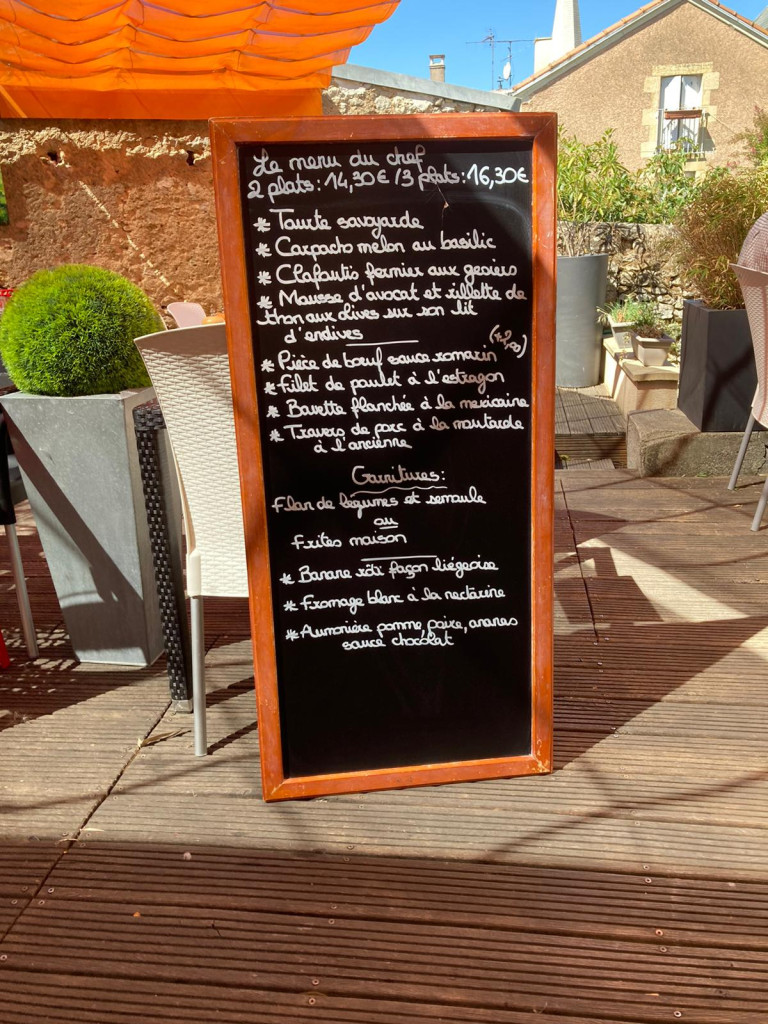 Le menu du chef
2 plats: 14,30€ / 3 plats: 16,30€
* Tourte savoyarde
* Carpacho melon au basilic
* Clafoutis fermier aux gesiers
* Mousse d'avocat et rillette de
thon aux olives sur son lit
d'endives
* Pièce de bœuf sauce romarin
* Filet de poulet à l'estragon
* Bavette flanchée à la mexicaine
* Travers de porc à la moutarde
à l'ancienne
Garnitures:
Flan de légumes et semoule
ou
Frites maison
* Banane rôti façon liégeoise
* Fromage blanc à la nectarine
* Aumonière pomme, poire, ananas
sauce chocolat